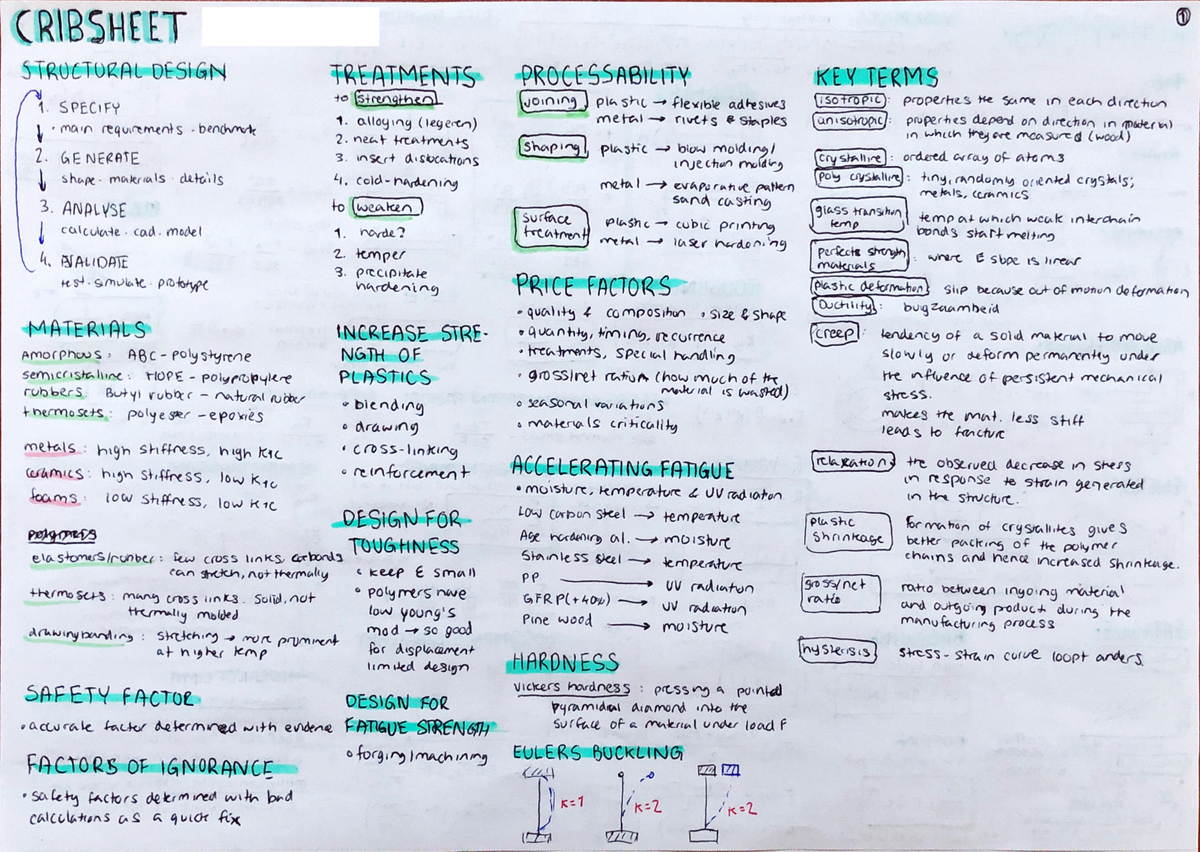 CRIBSHEET
1
STRUCTURAL DESIGN
1. SPECIFY
· main requirements · benchmate
2. GENERATE
shape · materials · details
3. ANALYSE
calculate · cad · model
4. EVALIDATE
test · simulate · prototype
MATERIALS
Amorphous: ABC - polystyrene
semicristalline: HDPE - polypropylene
rubbers: Butyl rubber - natural rubber
thermosets: polyester - epoxies
metals: high stiffness, high K1c
ceramics: high stiffness, low K1c
foams: low stiffness, low K1c
polymers
elastomers/rubber: few cross links, carbonds
can stretch, not thermally
thermosets: many cross links. Solid, not
thermally molded
drawing/banding: stretching → more prominent
at higher temp
SAFETY FACTOR
· accurate factor determined with evidence
FACTORS OF IGNORANCE
· safety factors determined with bad
calculations as a quick fix
TREATMENTS
to strengthen
1. alloying (legeren)
2. heat treatments
3. insert dislocations
4. cold-hardening
to weaken
1. harde?
2. temper
3. precipitate
hardening
INCREASE STRE-
NGTH OF
PLASTICS
· blending
· drawing
· cross-linking
· reinforcement
DESIGN FOR
TOUGHNESS
· keep E small
· polymers have
low young's
mod → so good
for displacement
limited design
DESIGN FOR
FATIGUE STRENGTH
· forging/machining
PROCESSABILITY
joining plastic → flexible adhesives
metal → rivets & staples
shaping plastic → blow molding/
injection molding
metal → evaporative pattern
sand casting
surface
treatment
plastic → cubic printing
metal → laser hardoning
PRICE FACTORS
· quality & composition · size & shape
· quantity, timing, recurrence
· treatments, special handling
· gross/net ratium (how much of the
material is wasted)
· seasonal variations
· materials criticality
ACCELERATING FATIGUE
· moisture, temperature & UV radiation
Low carbon steel → temperature
Age hardening al. → moisture
Stainless steel → temperature
PP → UV radiation
GFRP (+40%) → UV radiation
Pine wood → moisture
HARDNESS
Vickers hardness: pressing a pointed
pyramidial diamond into the
surface of a material under load F
EULERS BUCKLING
K=1
K=2
K=2
KEY TERMS
isotropic: properties the same in each direction
unisotropic: properties depend on direction in material
in which they are measured (wood)
crystalline: ordered array of atoms
poly crystalline: tiny, randomly oriented crystals;
metals, ceramics
glass transition
temp
temp at which weak interchain
bonds start melting
perfects strength
materials: where E slope is linear
plastic deformation slip because out of motion deformation
Ductility: buigzaamheid
creep: tendency of a solid material to move
slowly or deform permanently under
the influence of persistent mechanical
stress.
makes the mat. less stiff
leads to fracture
relaxation: the observed decrease in stess
in response to strain generated
in the structure.
plastic
shrinkage
formation of crystallites gives
better packing of the polymer
chains and hence increased shrinkage.
gross/net
ratio
ratio between ingoing material
and outgoing product during the
manufacturing process
hysterisis: stress-strain curve loopt anders